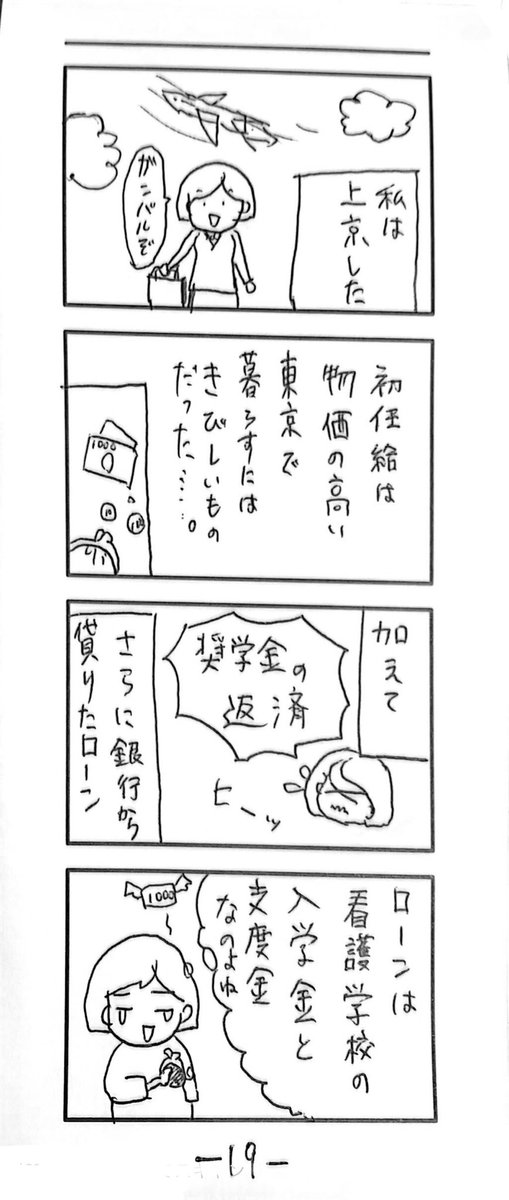 私は
上京した
ガンバルぞ
初任給は
物価の高い
東京で
暮らすには
きびしいもの
だった……。
1000
10
100
加えて
奨学金の
返済
ヒーッ
さらに銀行から
貸りたローン
ローンは
看護学校の
入学金と
支度金
なのよね
1000
-19-